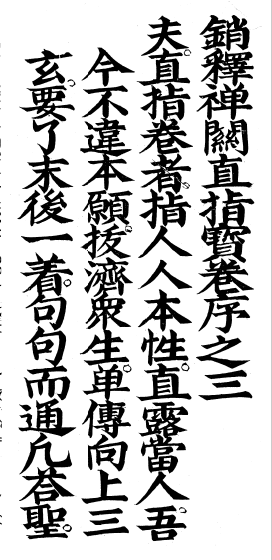 銷釋禅關直指寳巻序之三
夫直指巻者。指人人本性。直露當人。吾
今不違本願。拔濟衆生。单傳向上三
玄。要了末後一着。句句而通凢荅聖。